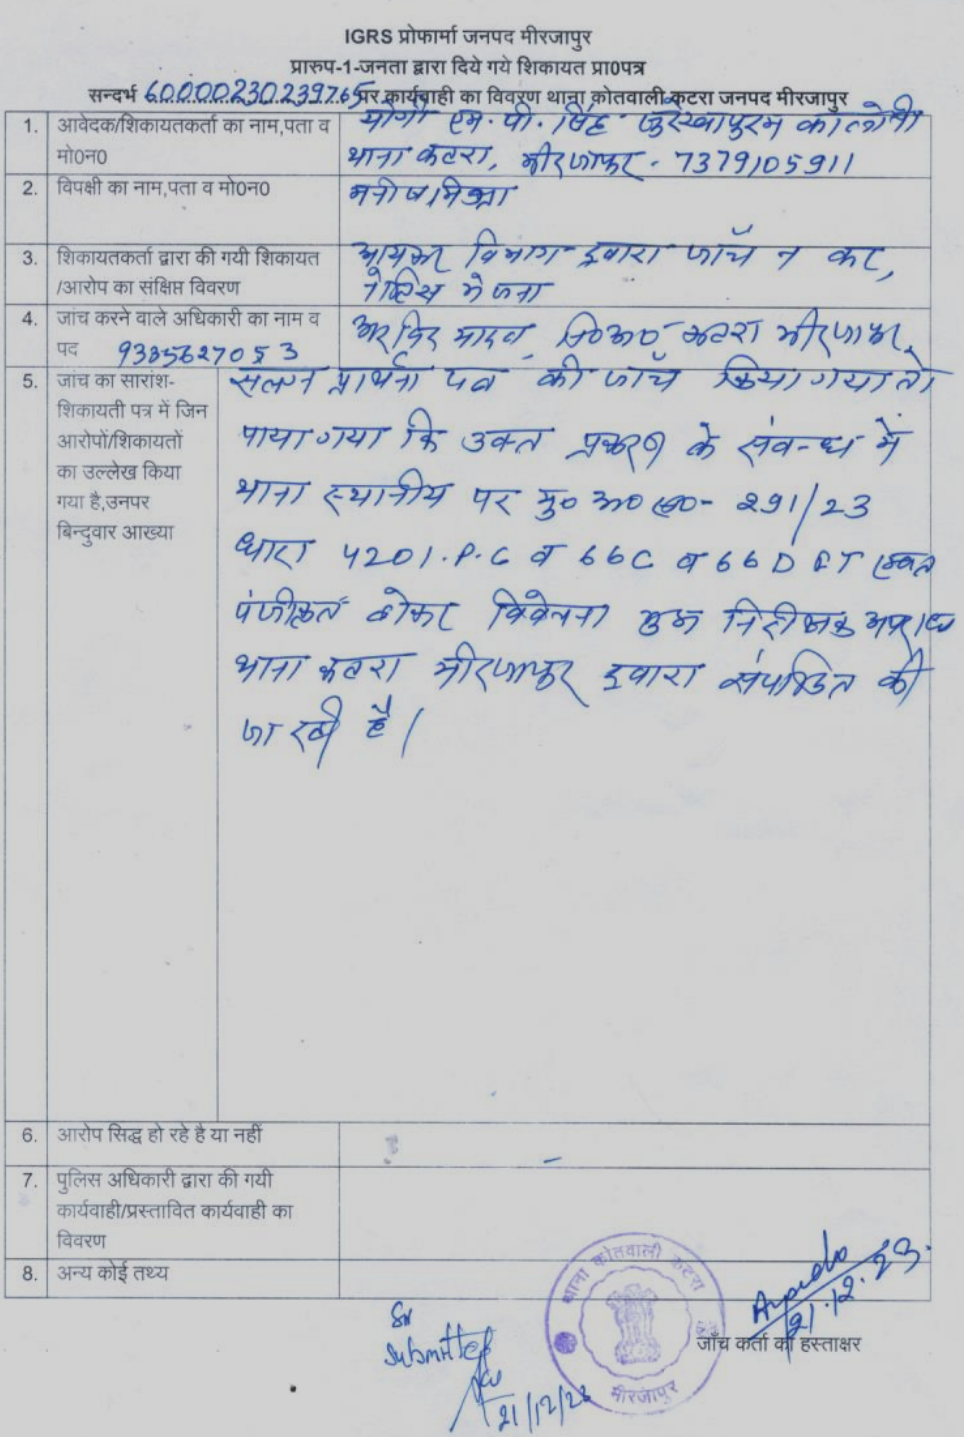 IGRS प्रोफार्मा जनपद मीरजापुर
प्रारुप-1-जनता द्वारा दिये गये शिकायत प्रा0पत्र
सन्दर्भ 60000230239765 पर कार्यवाही का विवरण थाना कोतवाली कटरा जनपद मीरजापुर
1. आवेदक/शिकायतकर्ता का नाम,पता व मो0न0
योगी एम. पी. सिंह सुरेखापुरम कालोनी
थाना कटरा, मीरजापुर - 7379105911
2. विपक्षी का नाम,पता व मो0न0
मनीष मिश्रा
3. शिकायतकर्ता द्वारा की गयी शिकायत /आरोप का संक्षिप्त विवरण
आयकर विभाग द्वारा जाँच न कर,
नोटिस भेजना
4. जांच करने वाले अधिकारी का नाम व पद 9335627053
यादव, कटरा मीरजापुर
5. जांच का सारांश-
शिकायती पत्र में जिन
आरोपों/शिकायतों
का उल्लेख किया
गया है,उनपर
बिन्दुवार आख्या
संलग्न प्रार्थना पत्र की जाँच किया गया तो
पाया गया कि उक्त प्रकरण के संबन्ध में
थाना स्थानीय पर मु0अ0स0- 291/23
धारा 420 I.P.C व 66C व 66D IT एक्ट
पंजीकृत होकर विवेचना निरीक्षक अपराध
थाना कटरा मीरजापुर द्वारा संपादित की
जा रही है।
6. आरोप सिद्ध हो रहे है या नहीं
–
7. पुलिस अधिकारी द्वारा की गयी
कार्यवाही/प्रस्तावित कार्यवाही का
विवरण
8. अन्य कोई तथ्य
थाना कोतवाली कटरा
मीरजापुर
21.12.23.
जाँच कर्ता का हस्ताक्षर
Sir
Submitted
21/12/23